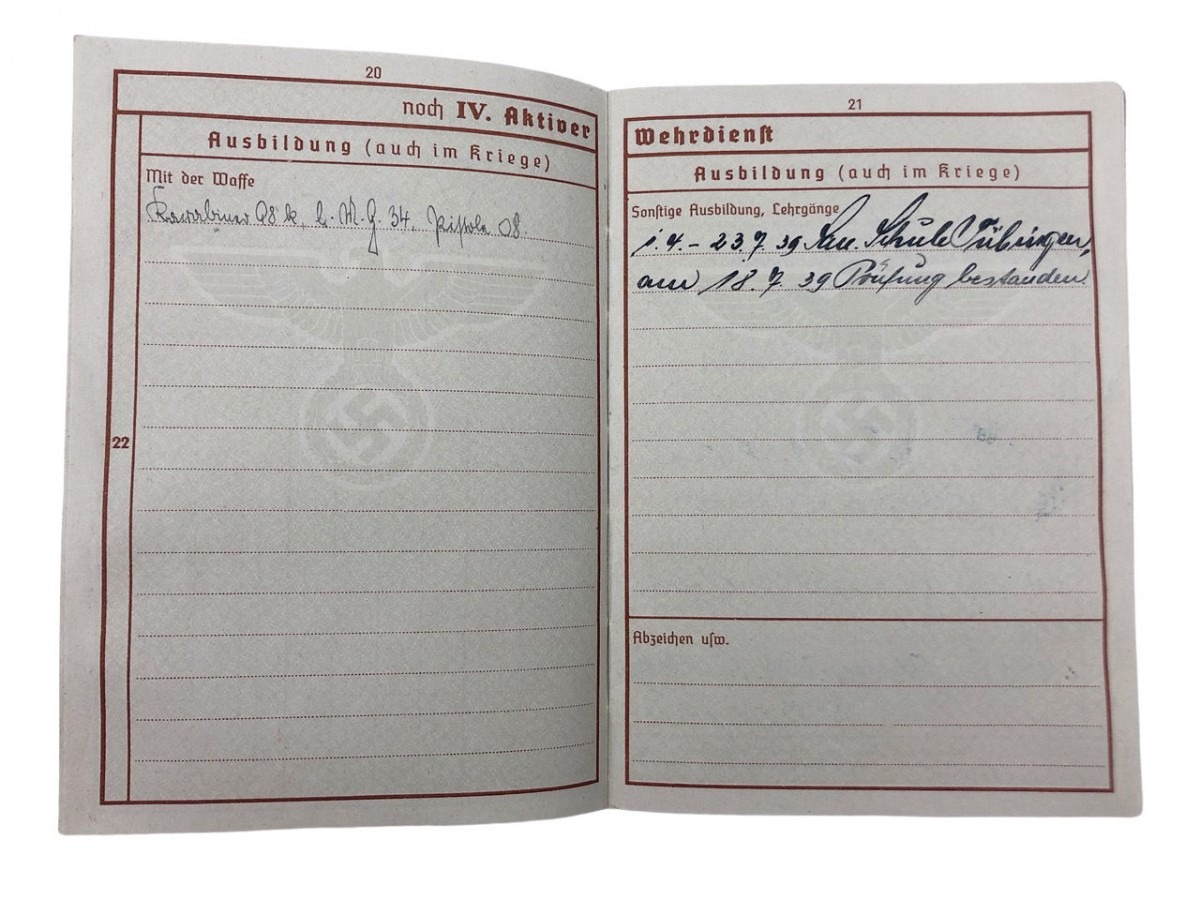 20
noch IV. Aktiver
Ausbildung (auch im Kriege)
Mit der Waffe
Karabiner 98 k, L. M. G. 34, Pistole 08.
22
21
Wehrdienst
Ausbildung (auch im Kriege)
Sonstige Ausbildung, Lehrgänge
1.4. - 23.7.39 San. Schule Tübingen,
am 18.7.39 Prüfung bestanden.
Abzeichen usw.